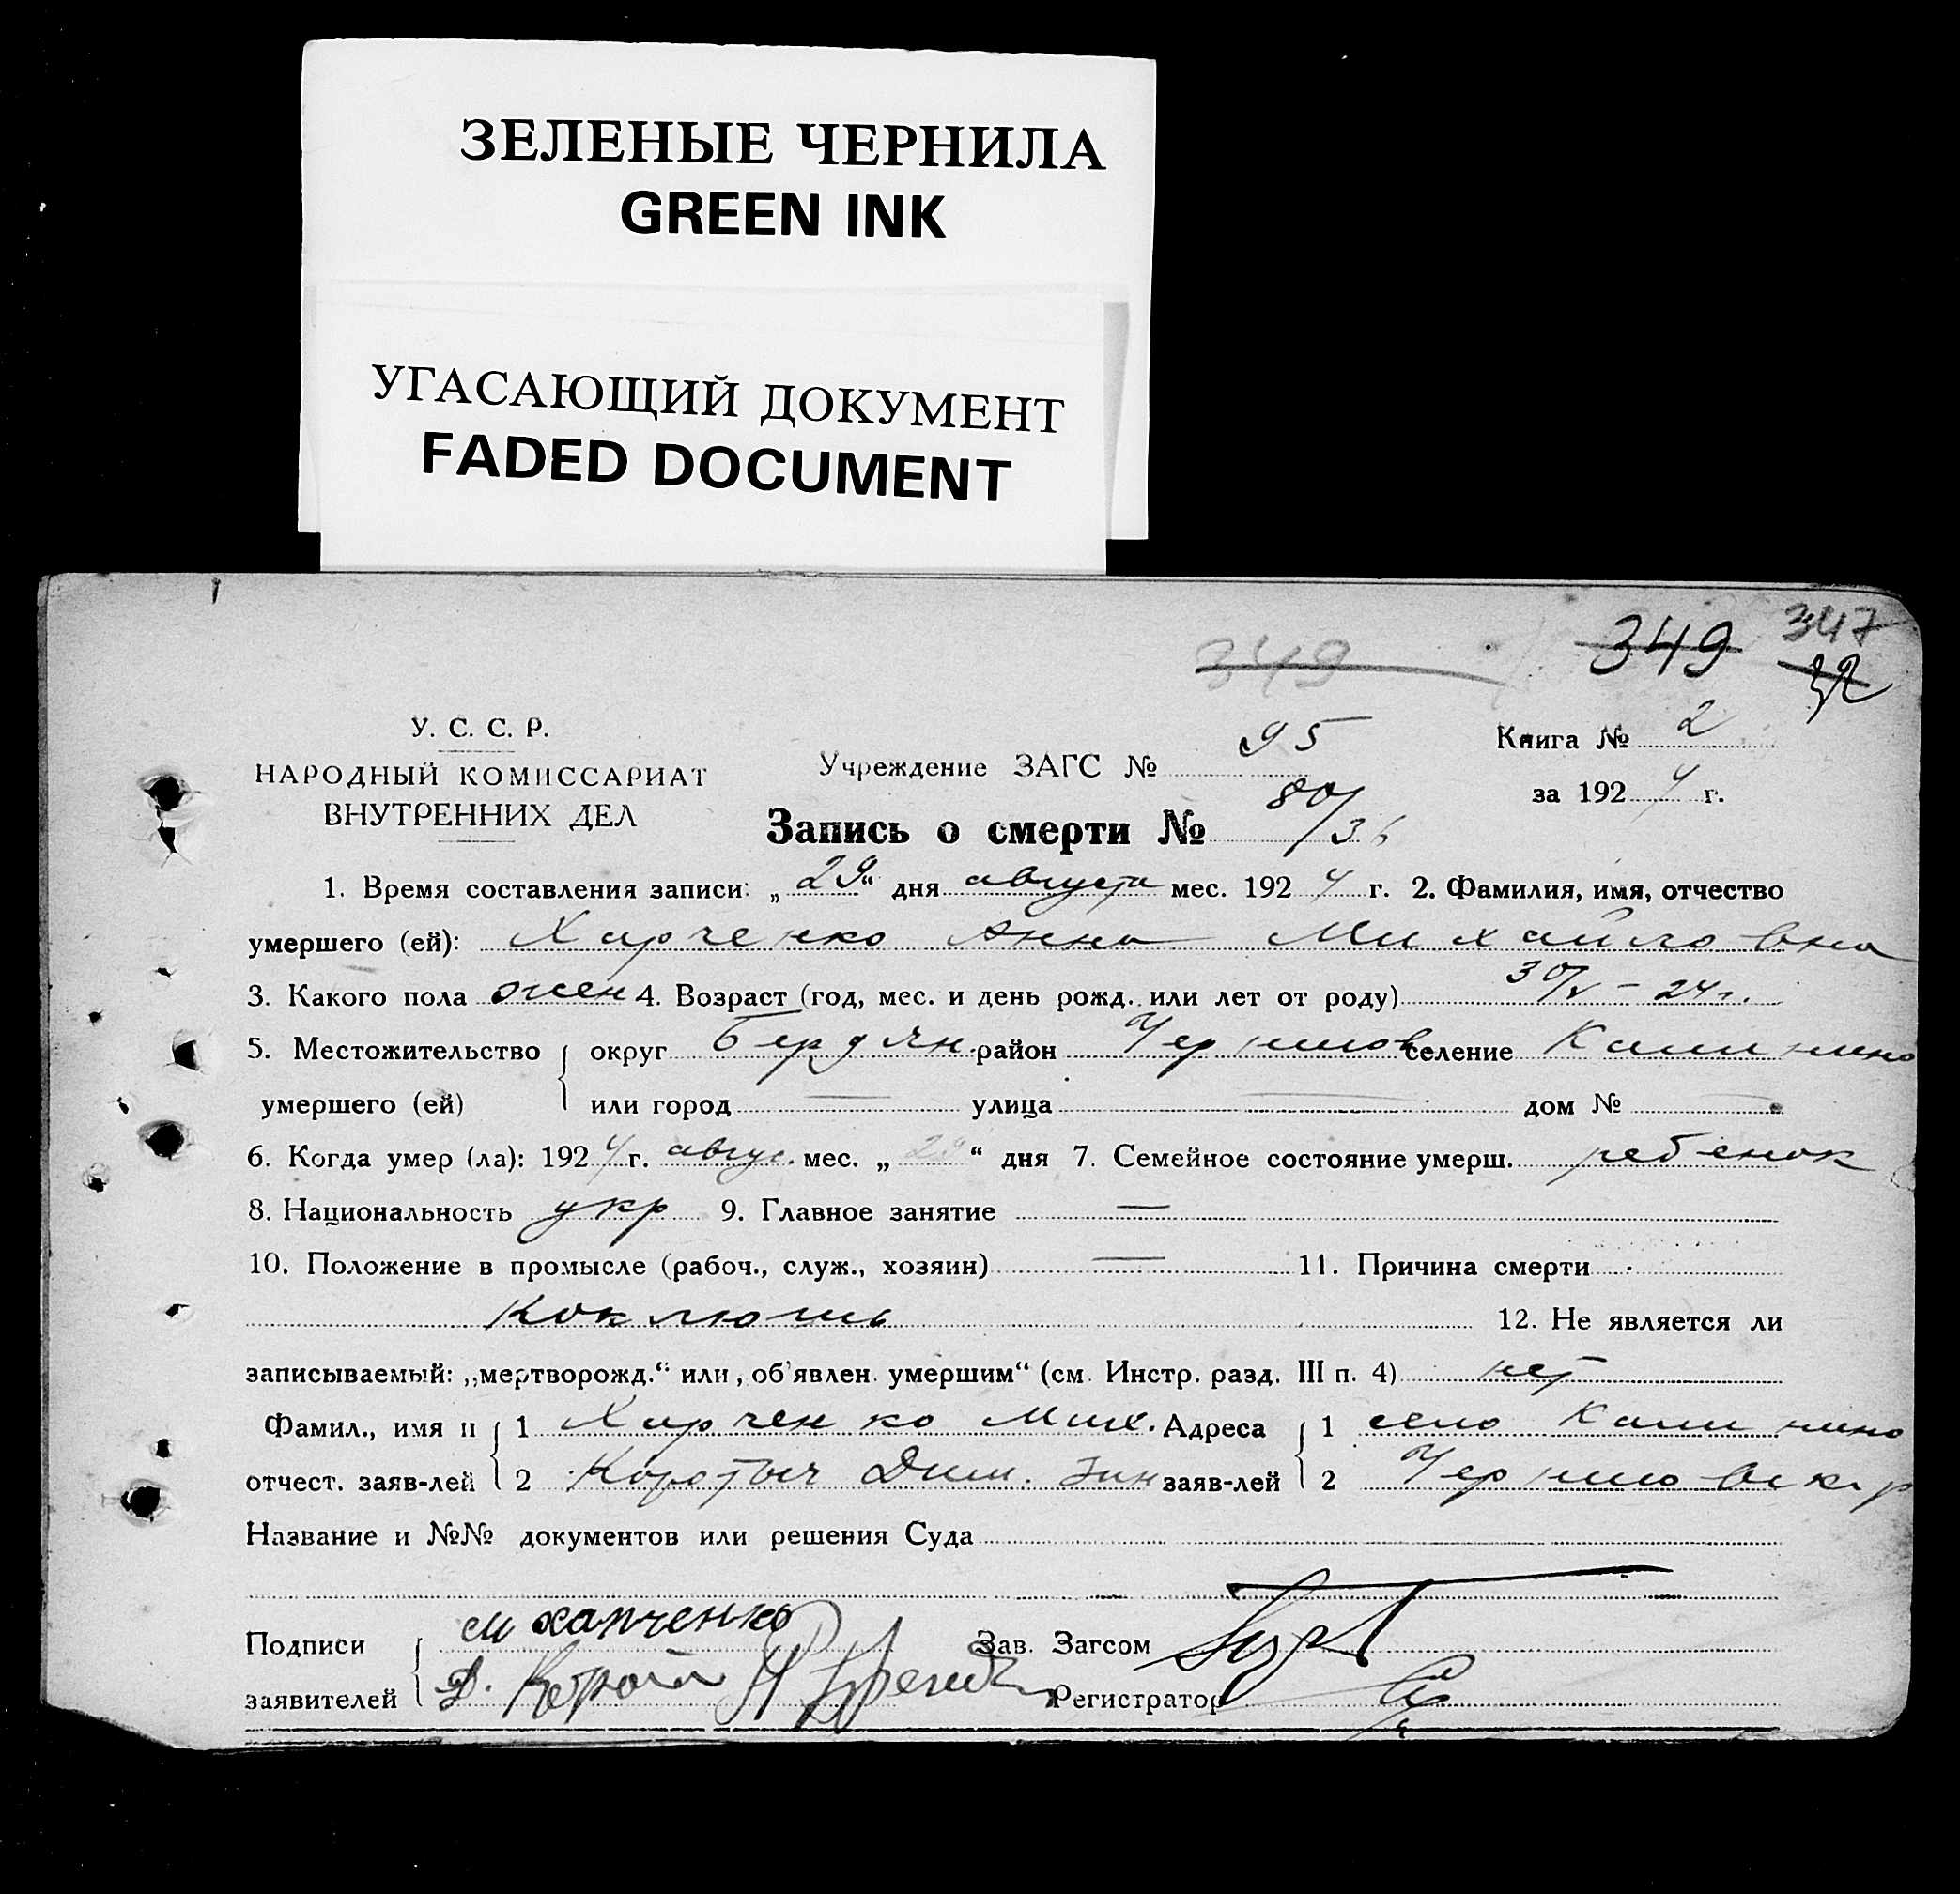 ЗЕЛЕНЫЕ ЧЕРНИЛА
GREEN INK
УГАСАЮЩИЙ ДОКУМЕНТ
FADED DOCUMENT
349 349 347
У. С. С. Р.
НАРОДНЫЙ КОМИССАРИАТ
ВНУТРЕННИХ ДЕЛ
Учреждение ЗАГС № 95
Книга № 2
за 1924 г.
Запись о смерти № 80/36
1. Время составления записи: „29“ дня августа мес. 1924 г. 2. Фамилия, имя, отчество
умершего (ей): Харченко Анна Михайловна
3. Какого пола жен 4. Возраст (год, мес. и день рожд. или лет от роду) 30/V – 24 г.
5. Местожительство округ Бердян. район Чернигов селение Калинино
умершего (ей) или город — улица — дом №
6. Когда умер (ла): 1924 г. авгус. мес. „29“ дня 7. Семейное состояние умерш. ребенок
8. Национальность укр 9. Главное занятие —
10. Положение в промысле (рабоч., служ., хозяин) — 11. Причина смерти
Коклюшь 12. Не является ли
записываемый: „мертворожд.“ или „об'явлен умершим“ (см. Инстр. разд. III п. 4) нет
Фамил., имя и 1 Харченко Мих. Адреса 1 село Калинино
отчест. заяв-лей 2 Коротыч Дим. заяв-лей 2
Название и №№ документов или решения Суда
Подписи м харченко Зав. Загсом
заявителей Д. Регистратор